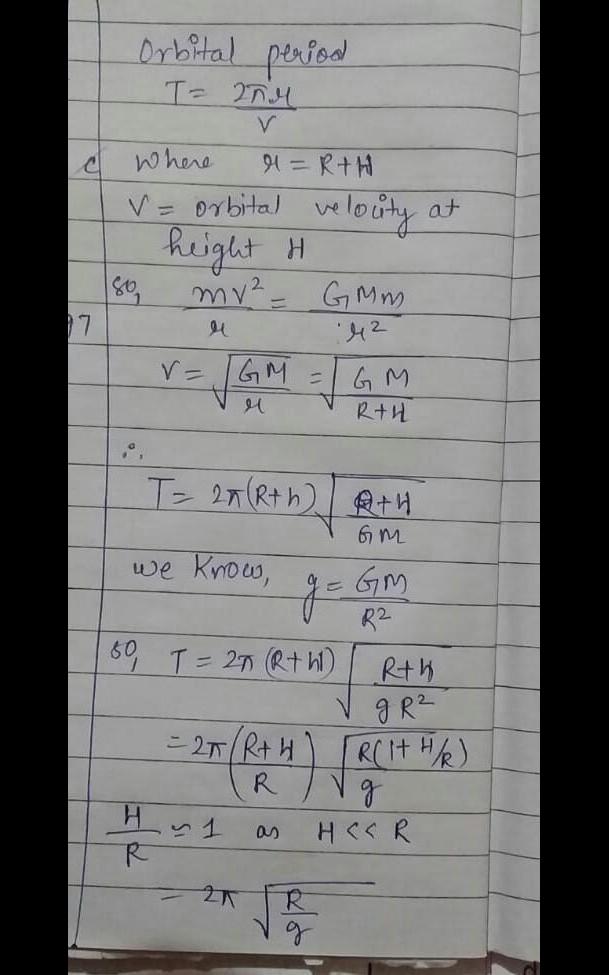 Orbital period
T = 2πr/V
c where r = R+H
V = orbital velocity at
height H
so, mv²/r = GMm/r²
97
V = √(GM/r) = √(GM/(R+H))
∴
T = 2π(R+h) √((R+H)/GM)
we know, g = GM/R²
so, T = 2π (R+H) √((R+H)/gR²)
= 2π ((R+H)/R) √(R(1+H/R)/g)
H/R ≈ 1 as H << R
= 2π √(R/g)